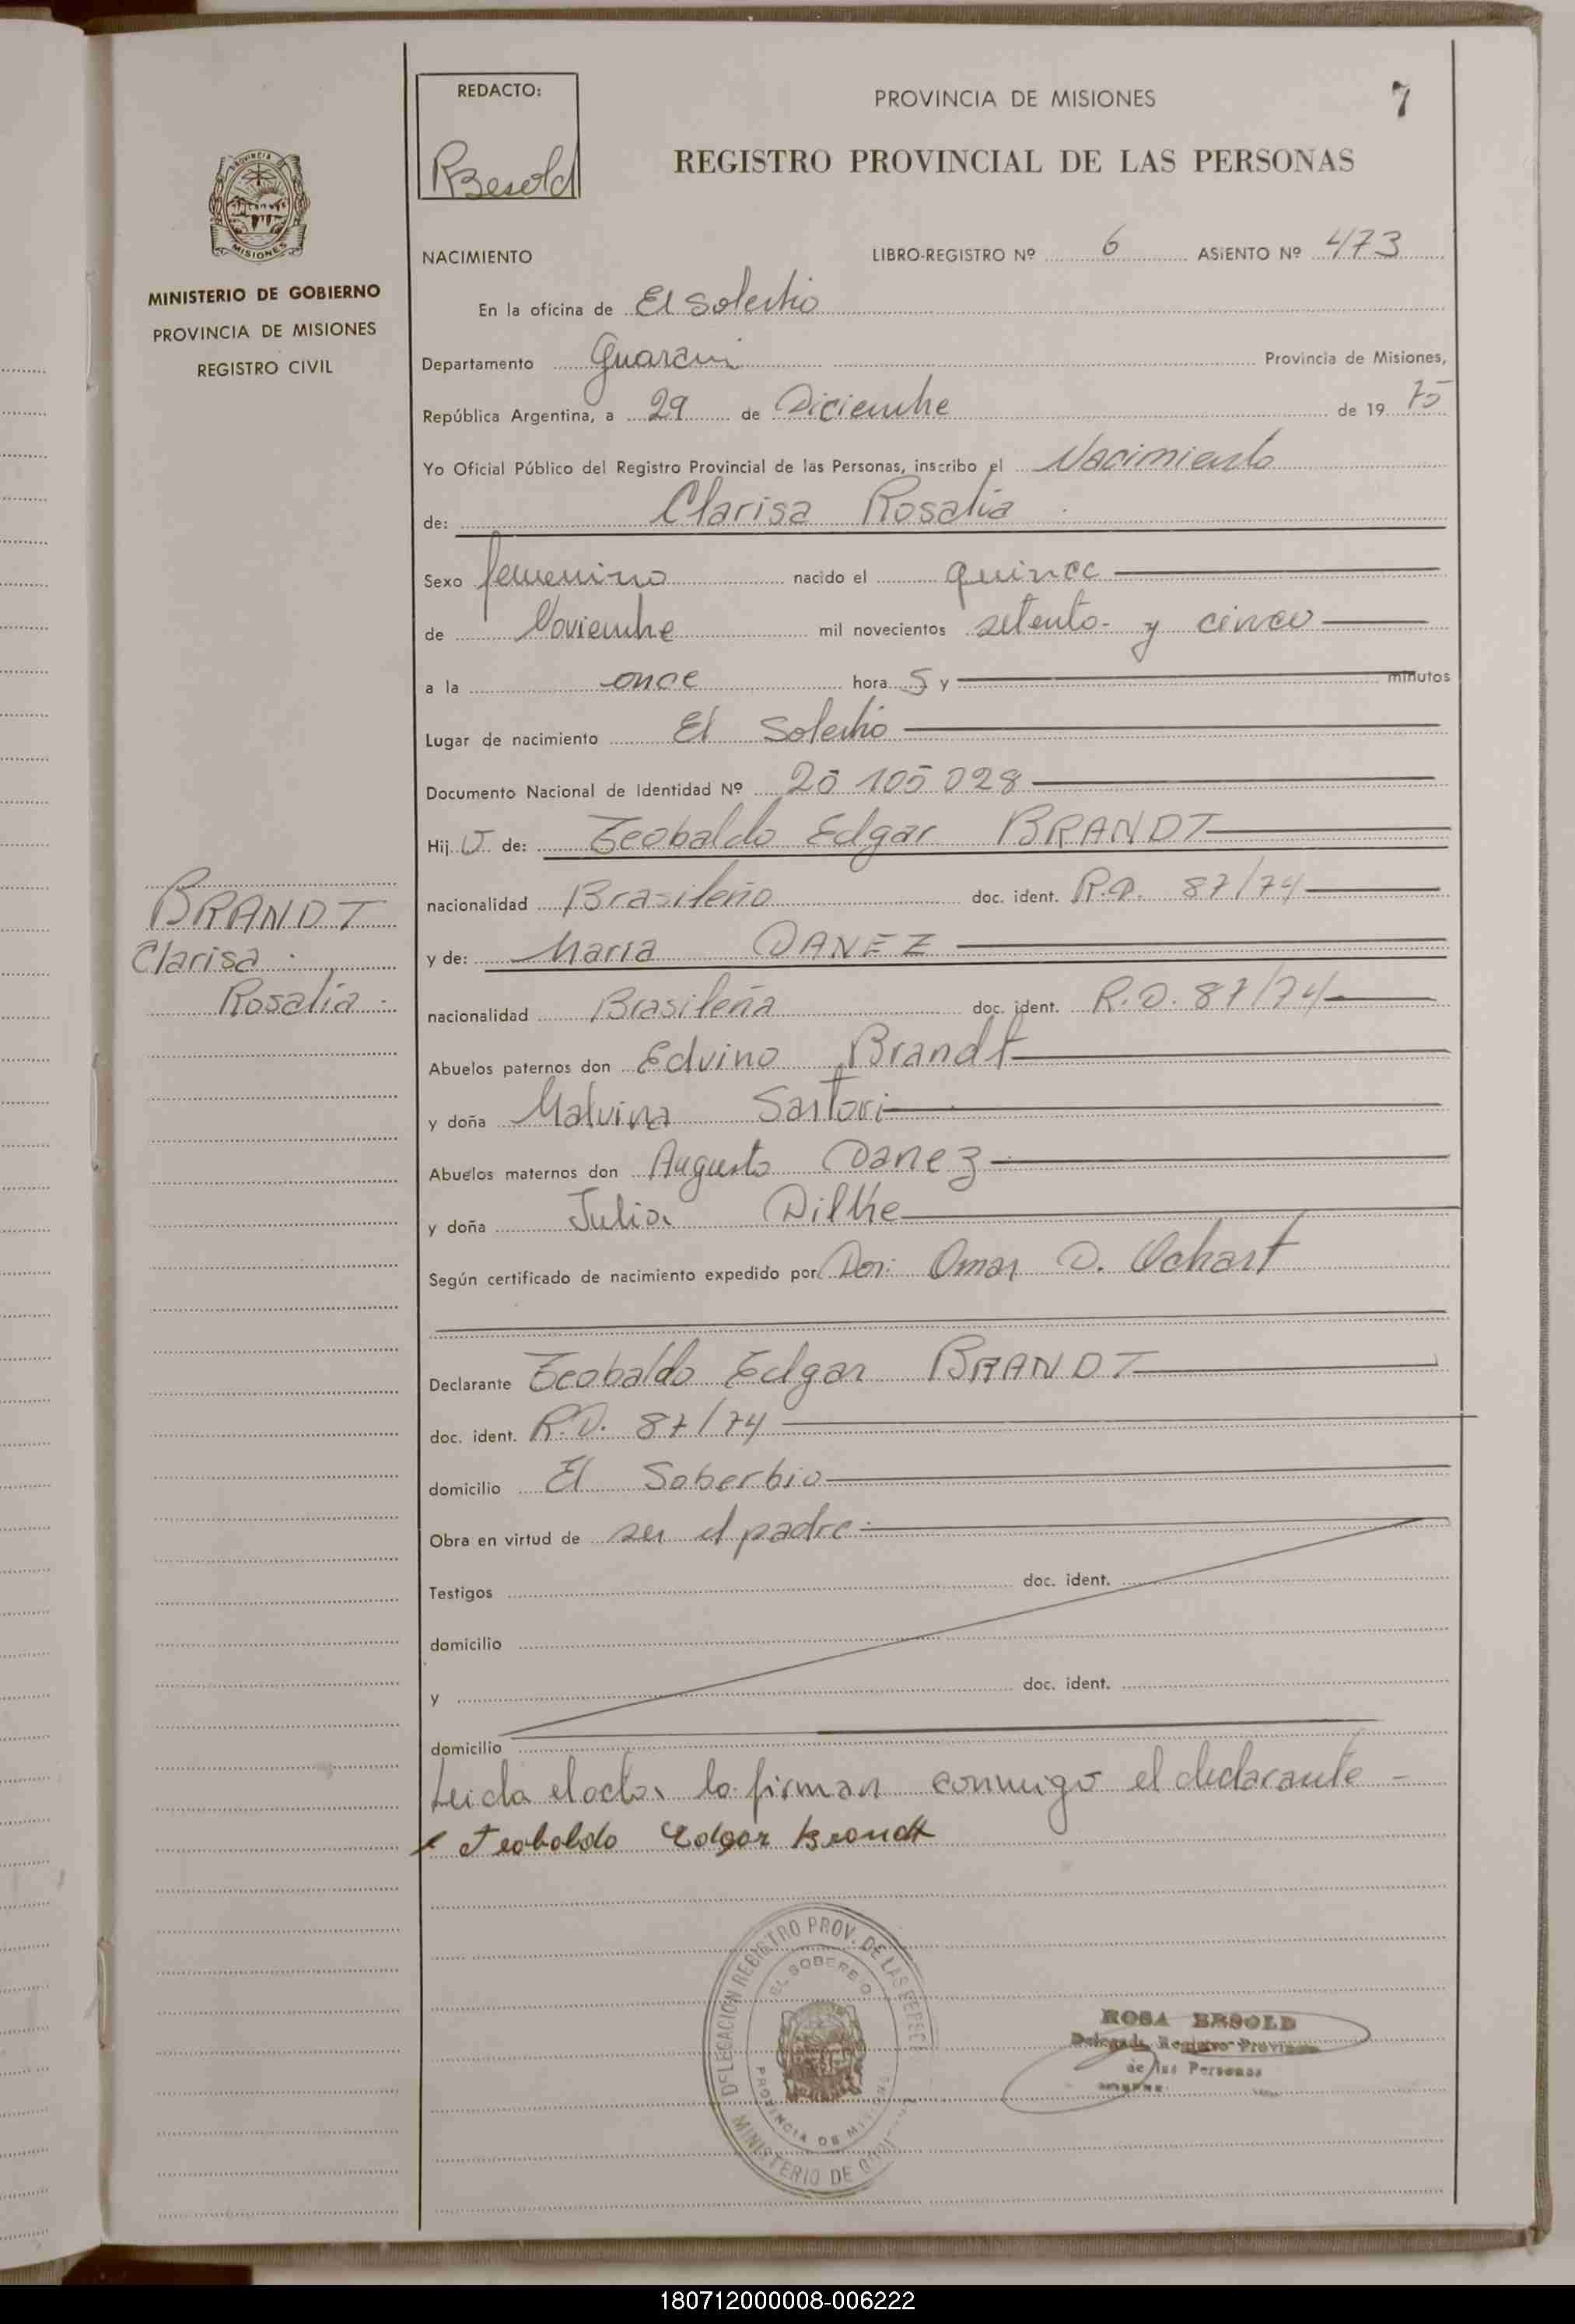 REDACTO:
RBesold
PROVINCIA DE MISIONES
7
REGISTRO PROVINCIAL DE LAS PERSONAS
PROVINCIA DE
MISIONES
MINISTERIO DE GOBIERNO
PROVINCIA DE MISIONES
REGISTRO CIVIL
NACIMIENTO LIBRO-REGISTRO Nº 6 ASIENTO Nº 473
En la oficina de El Soberbio
Departamento Guarani Provincia de Misiones,
República Argentina, a 29 de Diciembre de 19 75
Yo Oficial Público del Registro Provincial de las Personas, inscribo el Nacimiento
de: Clarisa Rosalia
Sexo femenino nacido el quince
de Noviembre mil novecientos setenta y cinco
a la once hora S y minutos
Lugar de nacimiento El Soberbio
Documento Nacional de Identidad Nº 25 105 028
Hij a de: Teobaldo Edgar BRANDT
nacionalidad Brasileño doc. ident. R.D. 87/74
y de: Maria DANEZ
nacionalidad Brasileña doc. ident. R.D. 87/74
BRANDT
Clarisa
Rosalia
Abuelos paternos don Edvino Brandt
y doña Malvina Sartori
Abuelos maternos don Augusto Danez
y doña Julia Dilke
Según certificado de nacimiento expedido por Dor: Omar D. Ochart
Declarante Teobaldo Edgar BRANDT
doc. ident. R.D. 87/74
domicilio El Soberbio
Obra en virtud de ser el padre
Testigos doc. ident.
domicilio
y doc. ident.
domicilio
Leida el acta, la firman conmigo el declarante -
Teobaldo Edgar Brandt
DELEGACIÓN REGISTRO PROV. DE LAS
EL SOBERBIO
PROVINCIA DE MISIONES
MINISTERIO DE
ROSA BESOLD
Delegada Registro Provincial
de las Personas
180712000008-006222